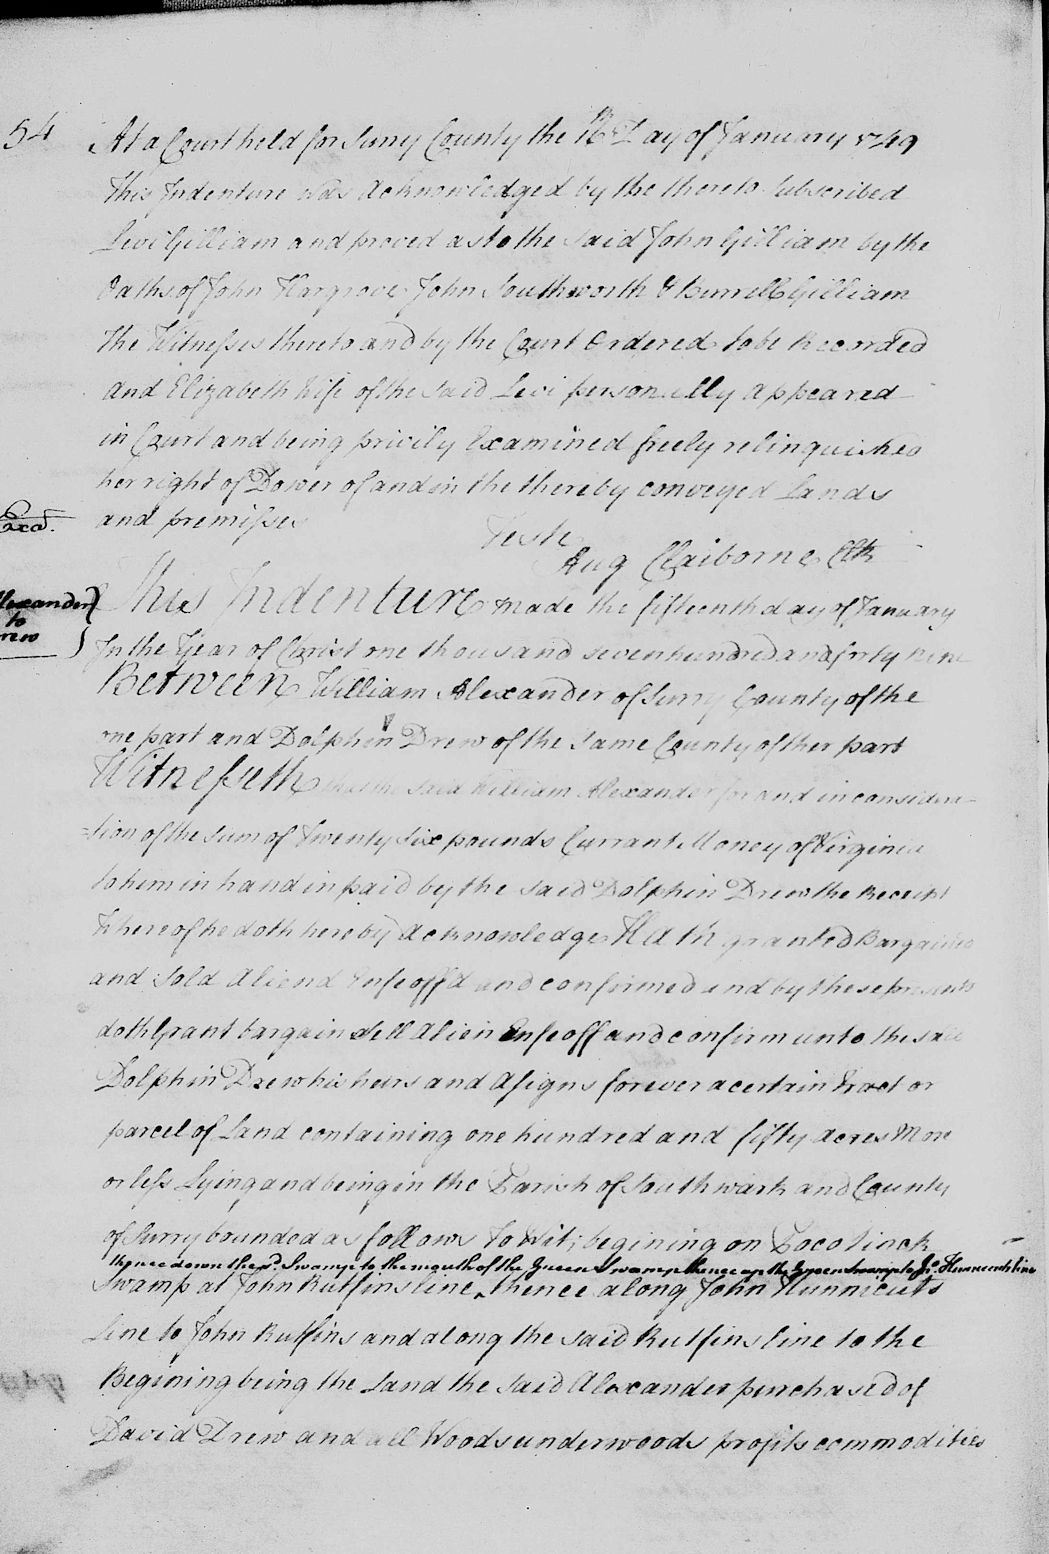 54
At a Court held for Surry County the Day of January 1749
This Indenture was Acknowledged by the thereto Subscribed
Levi Gilliam and proved as to the said John Gilliam by the
Oaths of John Hargrove John Southworth & Burrell Gilliam
the Witnesses thereto and by the Court Ordered to be Recorded
and Elizabeth Wife of the said Levi personally appeared
in Court and being privily Examined freely relinquished
her right of Dower of and in the thereby conveyed Lands
and premisses
Teste
Aug Claiborne Clk
Exad.
Alexander
to
Drew
This Indenture made the fifteenth day of January
In the Year of Christ one thousand seven hundred and forty nine
Between William Alexander of Surry County of the
one part and Dolphin Drew of the Same County of ther part
Witnesseth that the said William Alexander for and in considera-
=tion of the Sum of Twenty Six pounds Currant Money of Virginia
to him in hand in paid by the said Dolphin Drew the Receipt
Whereof he doth hereby Acknowledge Hath granted Bargained
and Sold Aliend Enfeoff'd and confirmed and by these presents
doth Grant bargain sell Alien Enfeoff and confirm unto the said
Dolphin Drew his heirs and Assigns forever a certain tract or
parcel of Land containing one hundred and fifty Acres More
or less Lying and being in the Parish of Southwark and County
of Surry bounded as follows To Wit; begining on Pocotinck
thence down the sd. Swamp to the mouth of the Green Swamp thence up the Green Swamp to Jno. Hunnicuts line
Swamp at John Ruffins line ‸ thence along John Hunnicuts
Line to John Ruffins and along the said Ruffins line to the
Begining being the Land the said Alexander purchased of
David Drew and all Woods underwoods profits commodities